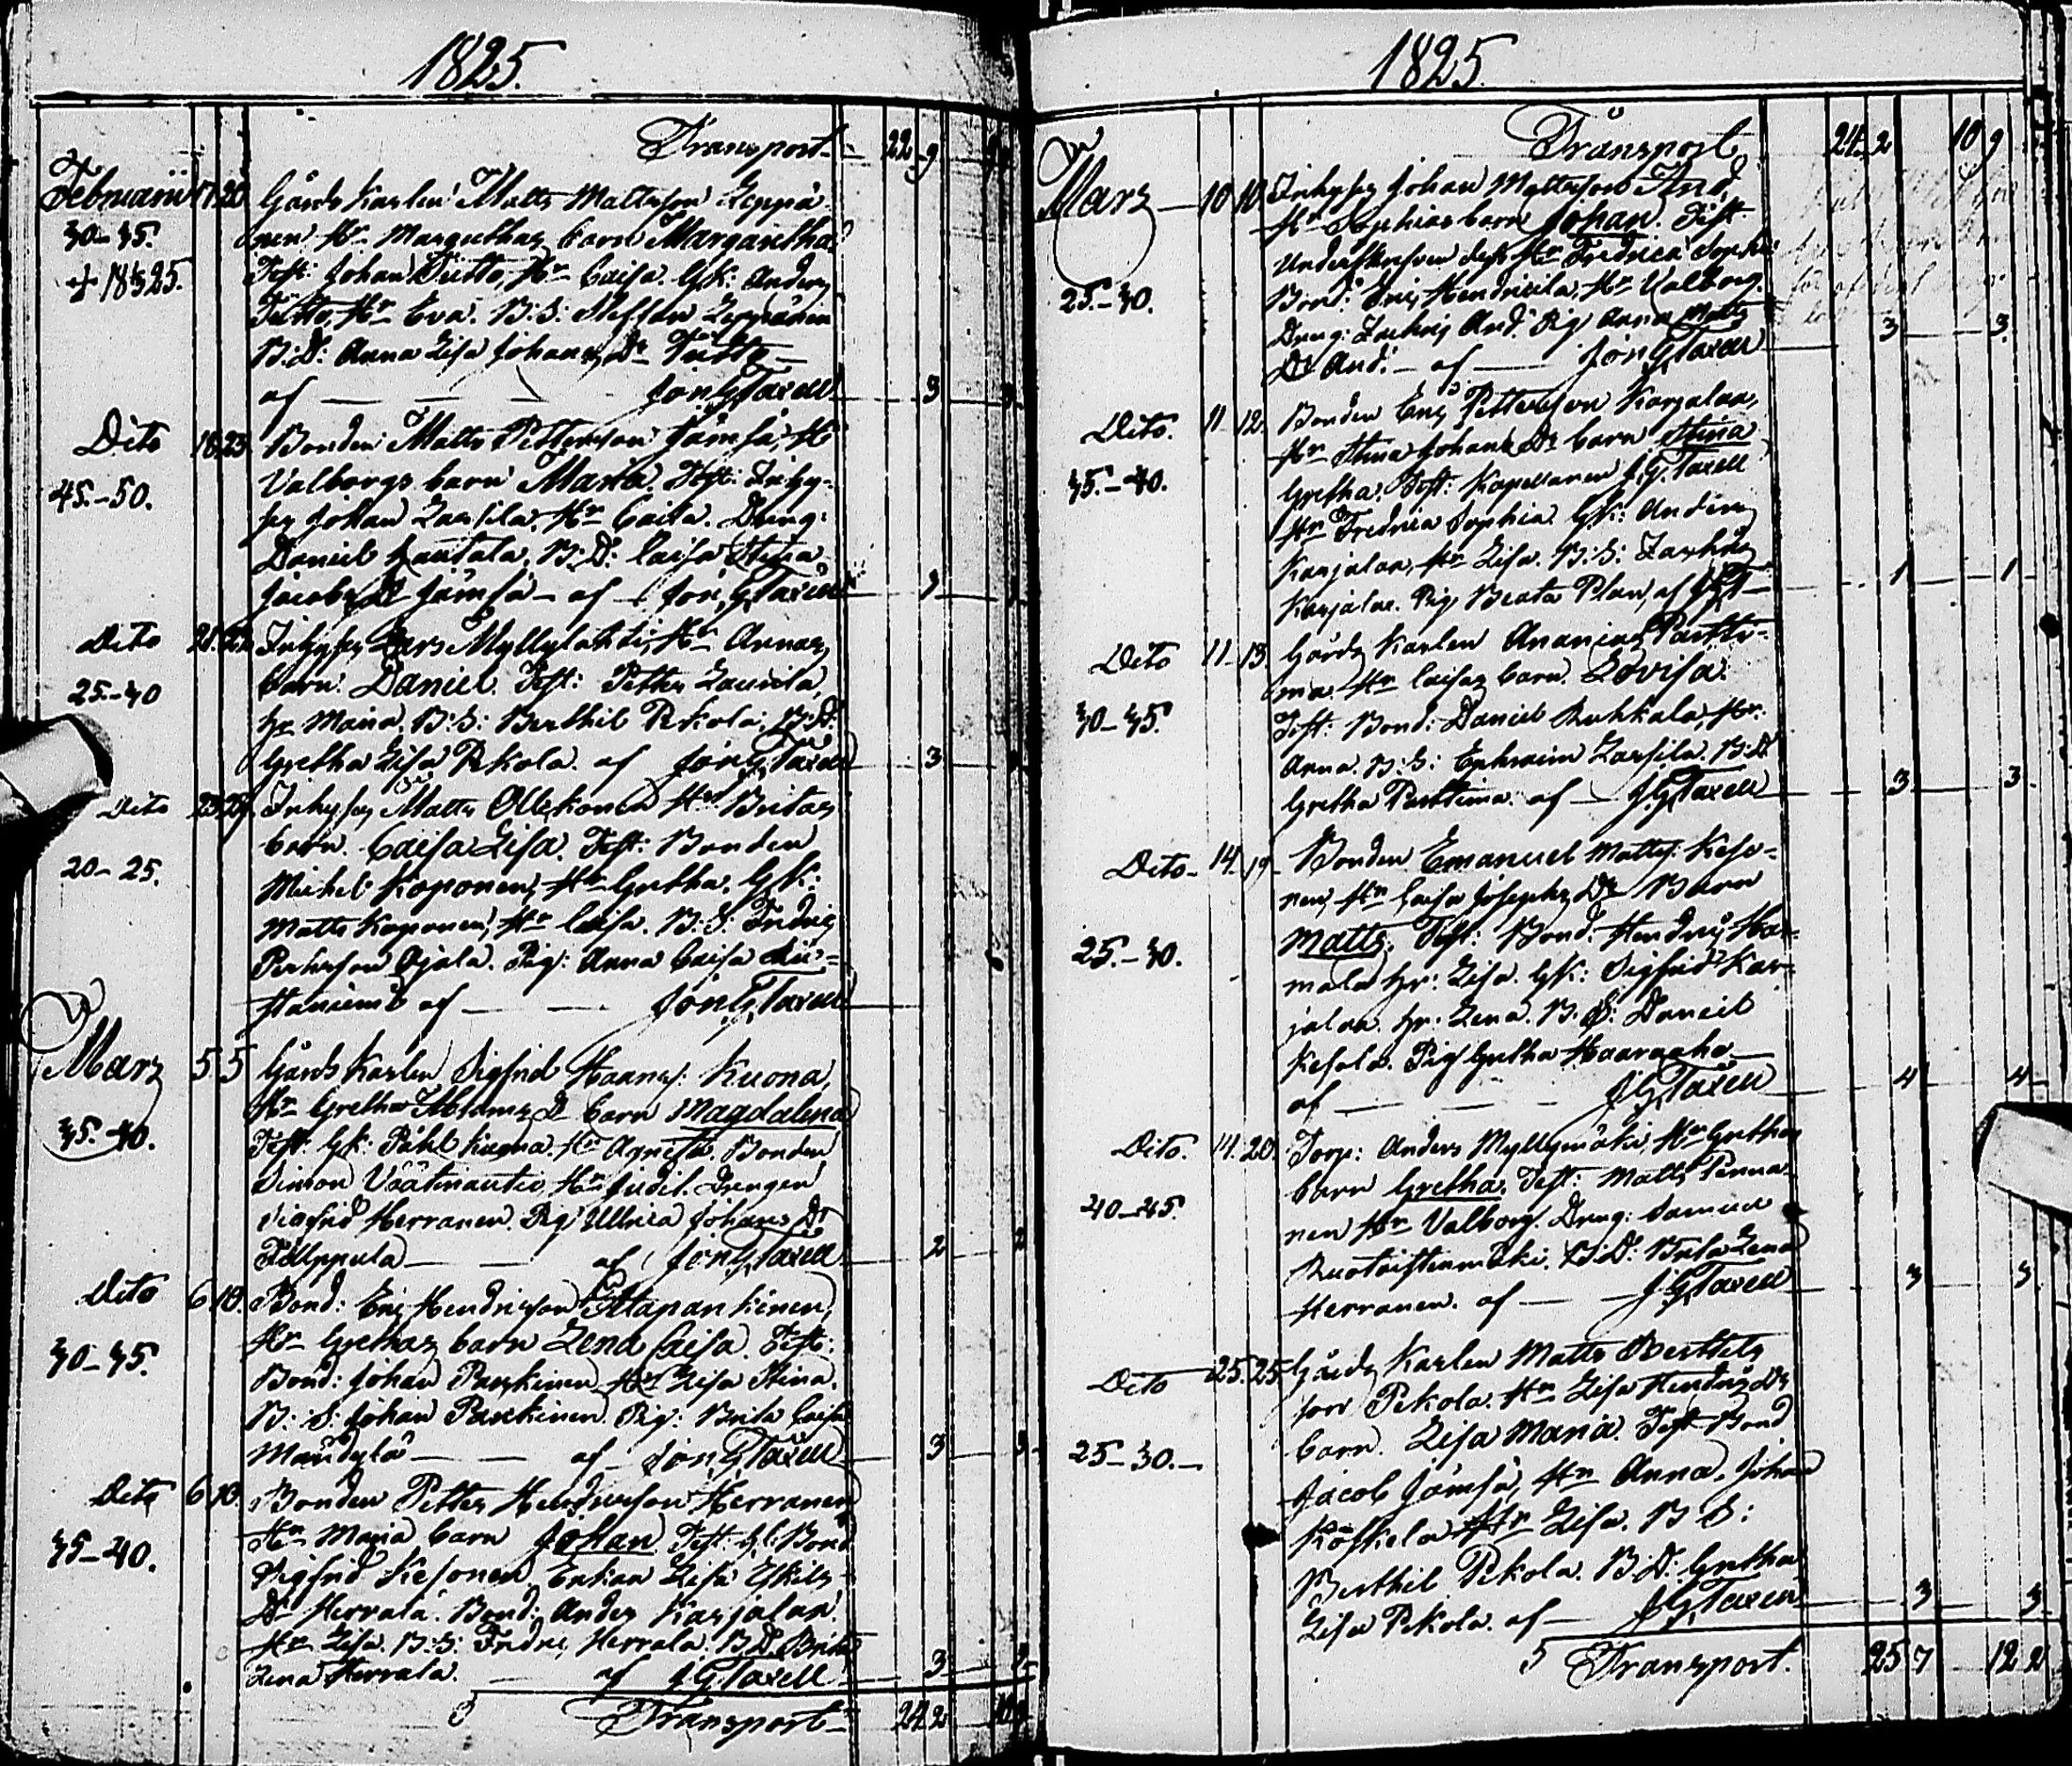 1825.
Transport 22 9
Februarii 17. 20. Gårds Karlen Matts Mattsson Leppä-
30-35. nen Hr Margethas barn Margaretha.
Test: Johan Tutto, Hr Caisa. GK: Anders
Tutto, Hr Eva. B:S: Steffan Leppänen
B:D: Anna Lisa Johans Dr Tutto
af Jon G Taxell 3
Dito 18. 23. Bonden Matts Pettersson Jämsä, H
45.-50. Valborgs barn Maria. Test: Inhy-
ses Johan Lassila. Hr Caisa. Dräng:
Daniel Rautala. B:D: Caisa Stina
Jacobs Dr Jämsä af Jon G Taxell
Dito Inhyses Lars Myllylahti, Hr Annas
25.-30 barn. Daniel. Test: Petter Laurila,
hr Maria. B:S: Berthil Pekola. B:D:
Gretha Lisa Pekola. af Jon G Taxell 3
Dito Inhyses Matts Ollikonen Hr Britas
20-25. barn. Caisa Lisa. Test: Bonden
Michel Koponen, Hr Gretha. GK:
Matts Koponen, Hr Caisa. B:S: Fredric
Pehrsson Ojala. Pig: Anna Caisa
af Jon G Taxell
Mars 5 5 Gårds Karlen Sigfrid Kuona,
35.-40. Hr Gretha Abrams D barn Magdalena
Test: GK: Påhl Kuona. Hr Agneta, Bonden
Simon Väätinautio, Hr Judit. Drengen
Sigfrid Herranen. Pig Ullrica Johans Dr
Filppula af Jon G Taxell 2 2
Dito 6 10. Bond: Eric Hendricsson Haapankinen,
30-35. Hr Grethas barn Lena Caisa. Test:
Bond: Johan Paskinen Hr Lisa Stina.
B: S: Johan Paskinen. Pig: Brita Caisa
Mäntylä af Jon G Taxell 3 3
Dito 6 10. Bonden Petter Hendricsson Herranen
35-40. Hr Maria barn Johan Test: Bond
Sigfrid Kesonen Enkan Lisa Eskils
Dr Herrala. Bond: Anders Karjalan.
Hr Lisa. B:S: Fredric Herrala. B:D. Brita
Lena Herrala. af J G Taxell 3
5 Transport 24 2
1825.
Transport 24 2 10 9
Mars 10 10 Inhyses Johan Mattsson And,
Hr Sophias barn Johan. Test
Underskrefven dess Hr Fredrica Sophia
25.-30. Bond: Eric Hendricila, Hr Valborg.
Dreng: Zachris And. Pig Anna Matts
Dr And. af Jon G Taxell 3 3.
Dito. 11 12. Bonden Eric Pettersson Karjalan,
Hr Stina Johans Dr barn Stina
35.-40. Gretha. Test: Kapellanen J.G. Taxell
Hr Fredrica Sophia. GK: Anders
Karjalan, Hr Lisa. B:S: Zachris
Karjalan. Pig Beata Plan, af JGT 1 1
Dito 11 13. Gårds Karlen Ananias Parhti-
ma. Hr Caisas barn. Lovisa.
30-35. Test: Bond: Daniel Ruhkala, Hr:
Anna. B:S: Ephraim Lassila. B:D
Gretha Parttima. af J.G. Taxell 3 3
Dito 14. 19 Bonden Emanuel Matts. Keso-
nen, Hr Caisa Josephs Dr Barn
25.-30. Matts. Test: Bond. Hendric Har-
mala hr: Lisa. GK: Sigfrid Kar-
jalan. hr: Lena. B.S: Daneil
Kesola. Pig Gretha Haaraaho
af J.G. Taxell 4 4
Dito. 14. 20. Torp: Anders Myllymäki, Hr Grethas
barn Gretha. Test: Matts Penna-
40-45. nen Hr Valborg. Dreng: Samuel
Ruotoistenmäki. B:D: Brita Lena
Herranen. af J.G. Taxell 3 3
Dito 25. 25. Gårds Karlen Matts Berthels
son Pekola. Hr Lisa Hendrics Dr
25-30. barn. Lisa Maria. Test Bond
Jacob Jämsä, Hr Anna. Johan
Koskela Hr Lisa. B S:
Berthil Pekola. B.D: Gretha
Lisa Pekola. af J.G. Taxell 3 3
5 Transport. 25 7 12 2